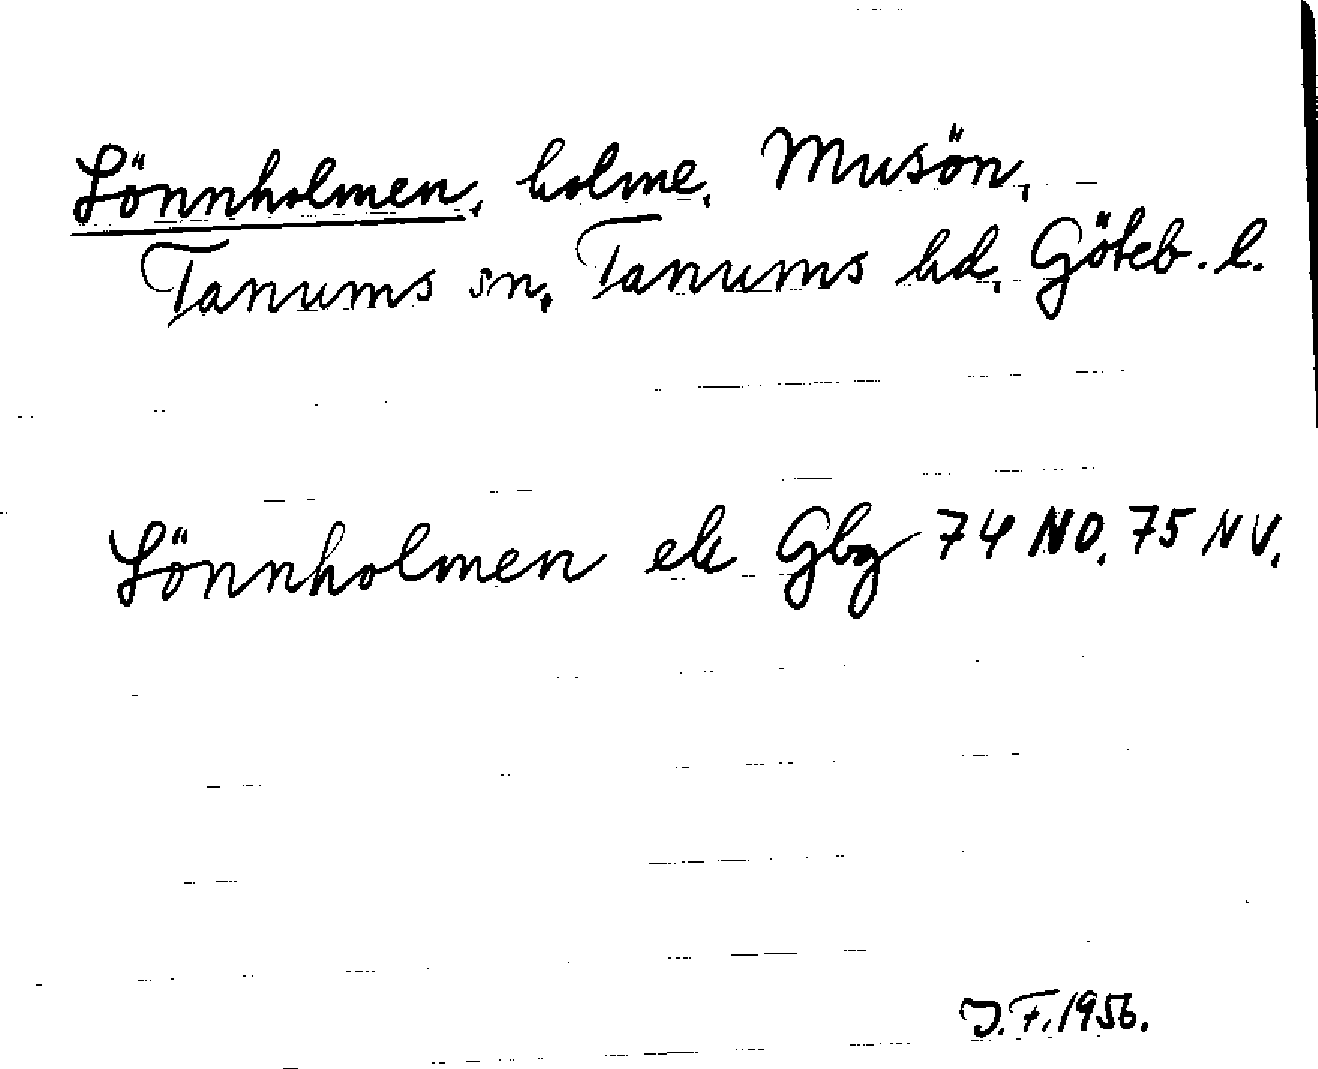 Lönnholmen, holme, Musön,
Tanums sn, Tanums hd, Göteb. l.
Lönnholmen ek Gbg 74 NO, 75 NV,
J.F. 1956.